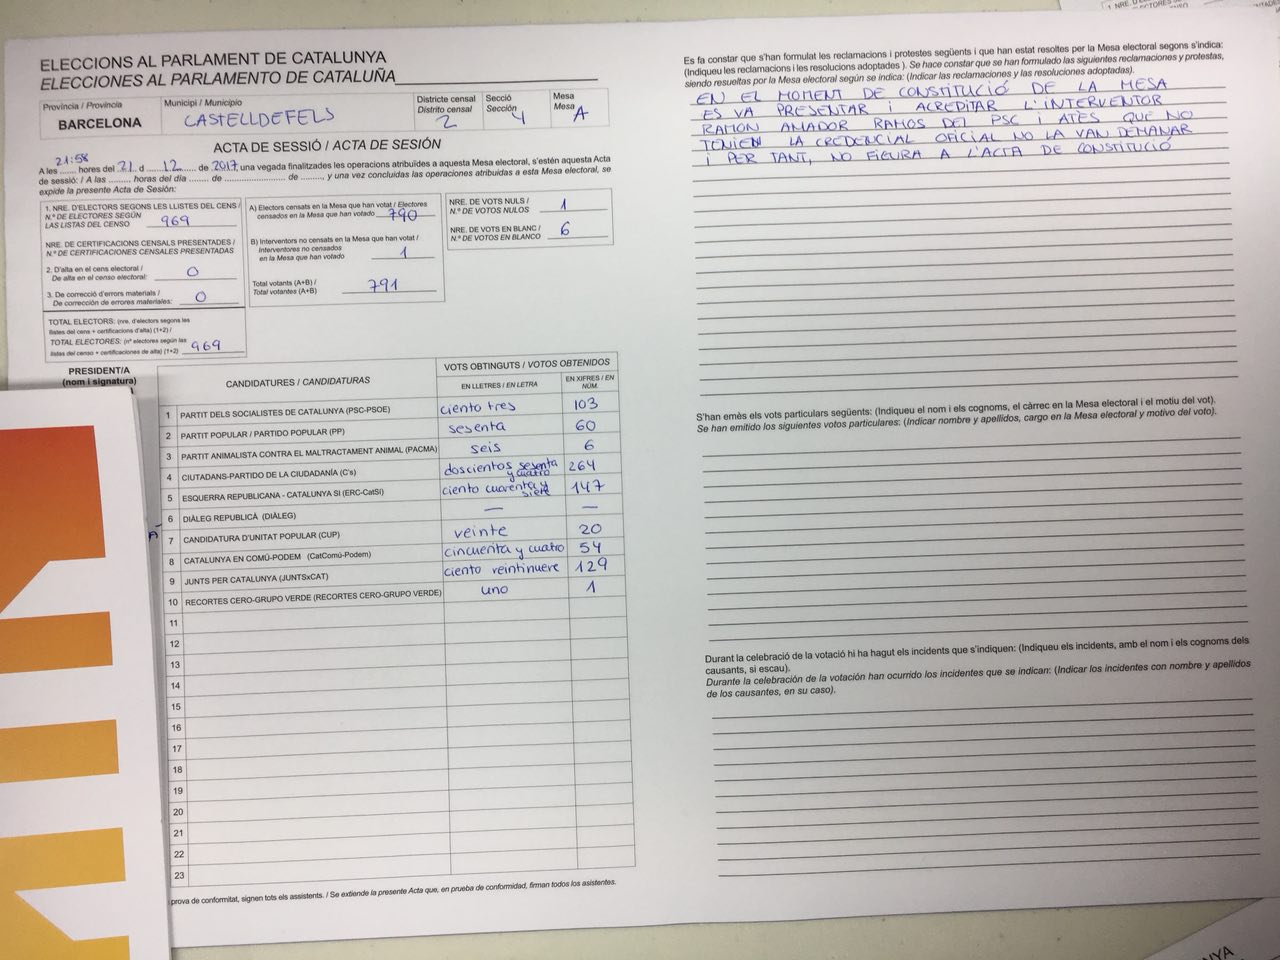 ELECCIONS AL PARLAMENT DE CATALUNYA
ELECCIONES AL PARLAMENTO DE CATALUÑA
Província / Provincia
BARCELONA
Municipi / Municipio
CASTELLDEFELS
Districte censal
Distrito censal
2
Secció
Sección
4
Mesa
Mesa
A
ACTA DE SESSIÓ / ACTA DE SESIÓN
21:58
A les ...... hores del 21 d ...... 12 ...... de 2017, una vegada finalitzades les operacions atribuïdes a aquesta Mesa electoral, s'estén aquesta Acta
de sessió: / A las ......... hores del día ...... de ........................ de ........, y una vez concluidas las operaciones atribuidas a esta Mesa electoral, se
expide la presente Acta de Sesión:
1. NRE. D'ELECTORS SEGONS LES LLISTES DEL CENS /
N.º DE ELECTORES SEGÚN
LAS LISTAS DEL CENSO 969
NRE. DE CERTIFICACIONS CENSALS PRESENTADES /
N.º DE CERTIFICACIONES CENSALES PRESENTADAS
2. D'alta en el cens electoral /
De alta en el censo electoral: 0
3. De correcció d'errors materials /
De corrección de errores materiales: 0
TOTAL ELECTORS: (nre. d'electors segons les
llistes del cens + certificacions d'alta) (1+2) /
TOTAL ELECTORES: (nº electores según las
listas del censo + certificaciones de alta) (1+2) 969
A) Electors censats en la Mesa que han votat / Electores
censados en la Mesa que han votado 790
B) Interventors no censats en la Mesa que han votat /
Interventores no censados
en la Mesa que han votado 1
Total votants (A+B) /
Total votantes (A+B) 791
NRE. DE VOTS NULS /
N.º DE VOTOS NULOS 1
NRE. DE VOTS EN BLANC /
N.º DE VOTOS EN BLANCO 6
PRESIDENT/A
(nom i signatura)
CANDIDATURES / CANDIDATURAS
VOTS OBTINGUTS / VOTOS OBTENIDOS
EN LLETRES / EN LETRA
EN XIFRES / EN NÚM.
1 PARTIT DELS SOCIALISTES DE CATALUNYA (PSC-PSOE) ciento tres 103
2 PARTIT POPULAR / PARTIDO POPULAR (PP) sesenta 60
3 PARTIT ANIMALISTA CONTRA EL MALTRACTAMENT ANIMAL (PACMA) seis 6
4 CIUTADANS-PARTIDO DE LA CIUDADANÍA (C's) doscientos sesenta y cuatro 264
5 ESQUERRA REPUBLICANA - CATALUNYA SI (ERC-CatSí) ciento cuarenta y siete 147
6 DIÀLEG REPUBLICÀ (DIÀLEG) — —
7 CANDIDATURA D'UNITAT POPULAR (CUP) veinte 20
8 CATALUNYA EN COMÚ-PODEM (CatComú-Podem) cincuenta y cuatro 54
9 JUNTS PER CATALUNYA (JUNTSxCAT) ciento veintinueve 129
10 RECORTES CERO-GRUPO VERDE (RECORTES CERO-GRUPO VERDE) uno 1
11
12
13
14
15
16
17
18
19
20
21
22
23
prova de conformitat, signen tots els assistents. / Se extiende la presente Acta que, en prueba de conformidad, firman todos los asistentes.
Es fa constar que s'han formulat les reclamacions i protestes següents i que han estat resoltes per la Mesa electoral segons s'indica:
(Indiqueu les reclamacions i les resolucions adoptades ). Se hace constar que se han formulado las siguientes reclamaciones y protestas,
siendo resueltas por la Mesa electoral según se indica: (Indicar las reclamaciones y las resoluciones adoptadas).
EN EL MOMENT DE CONSTITUCIÓ DE LA MESA
ES VA PRESENTAR I ACREDITAR L'INTERVENTOR
RAMON AMADOR RAMOS DEL PSC I ATÈS QUE NO
TENIEN LA CREDENCIAL OFICIAL NO LA VAN DEMANAR
I PER TANT, NO FIGURA A L'ACTA DE CONSTITUCIÓ
S'han emès els vots particulars següents: (Indiqueu el nom i els cognoms, el càrrec en la Mesa electoral i el motiu del vot).
Se han emitido los siguientes votos particulares: (Indicar nombre y apellidos, cargo en la Mesa electoral y motivo del voto).
Durant la celebració de la votació hi ha hagut els incidents que s'indiquen: (Indiqueu els incidents, amb el nom i els cognoms dels
causants, si escau).
Durante la celebración de la votación han ocurrido los incidentes que se indican: (Indicar los incidentes con nombre y apellidos
de los causantes, en su caso).